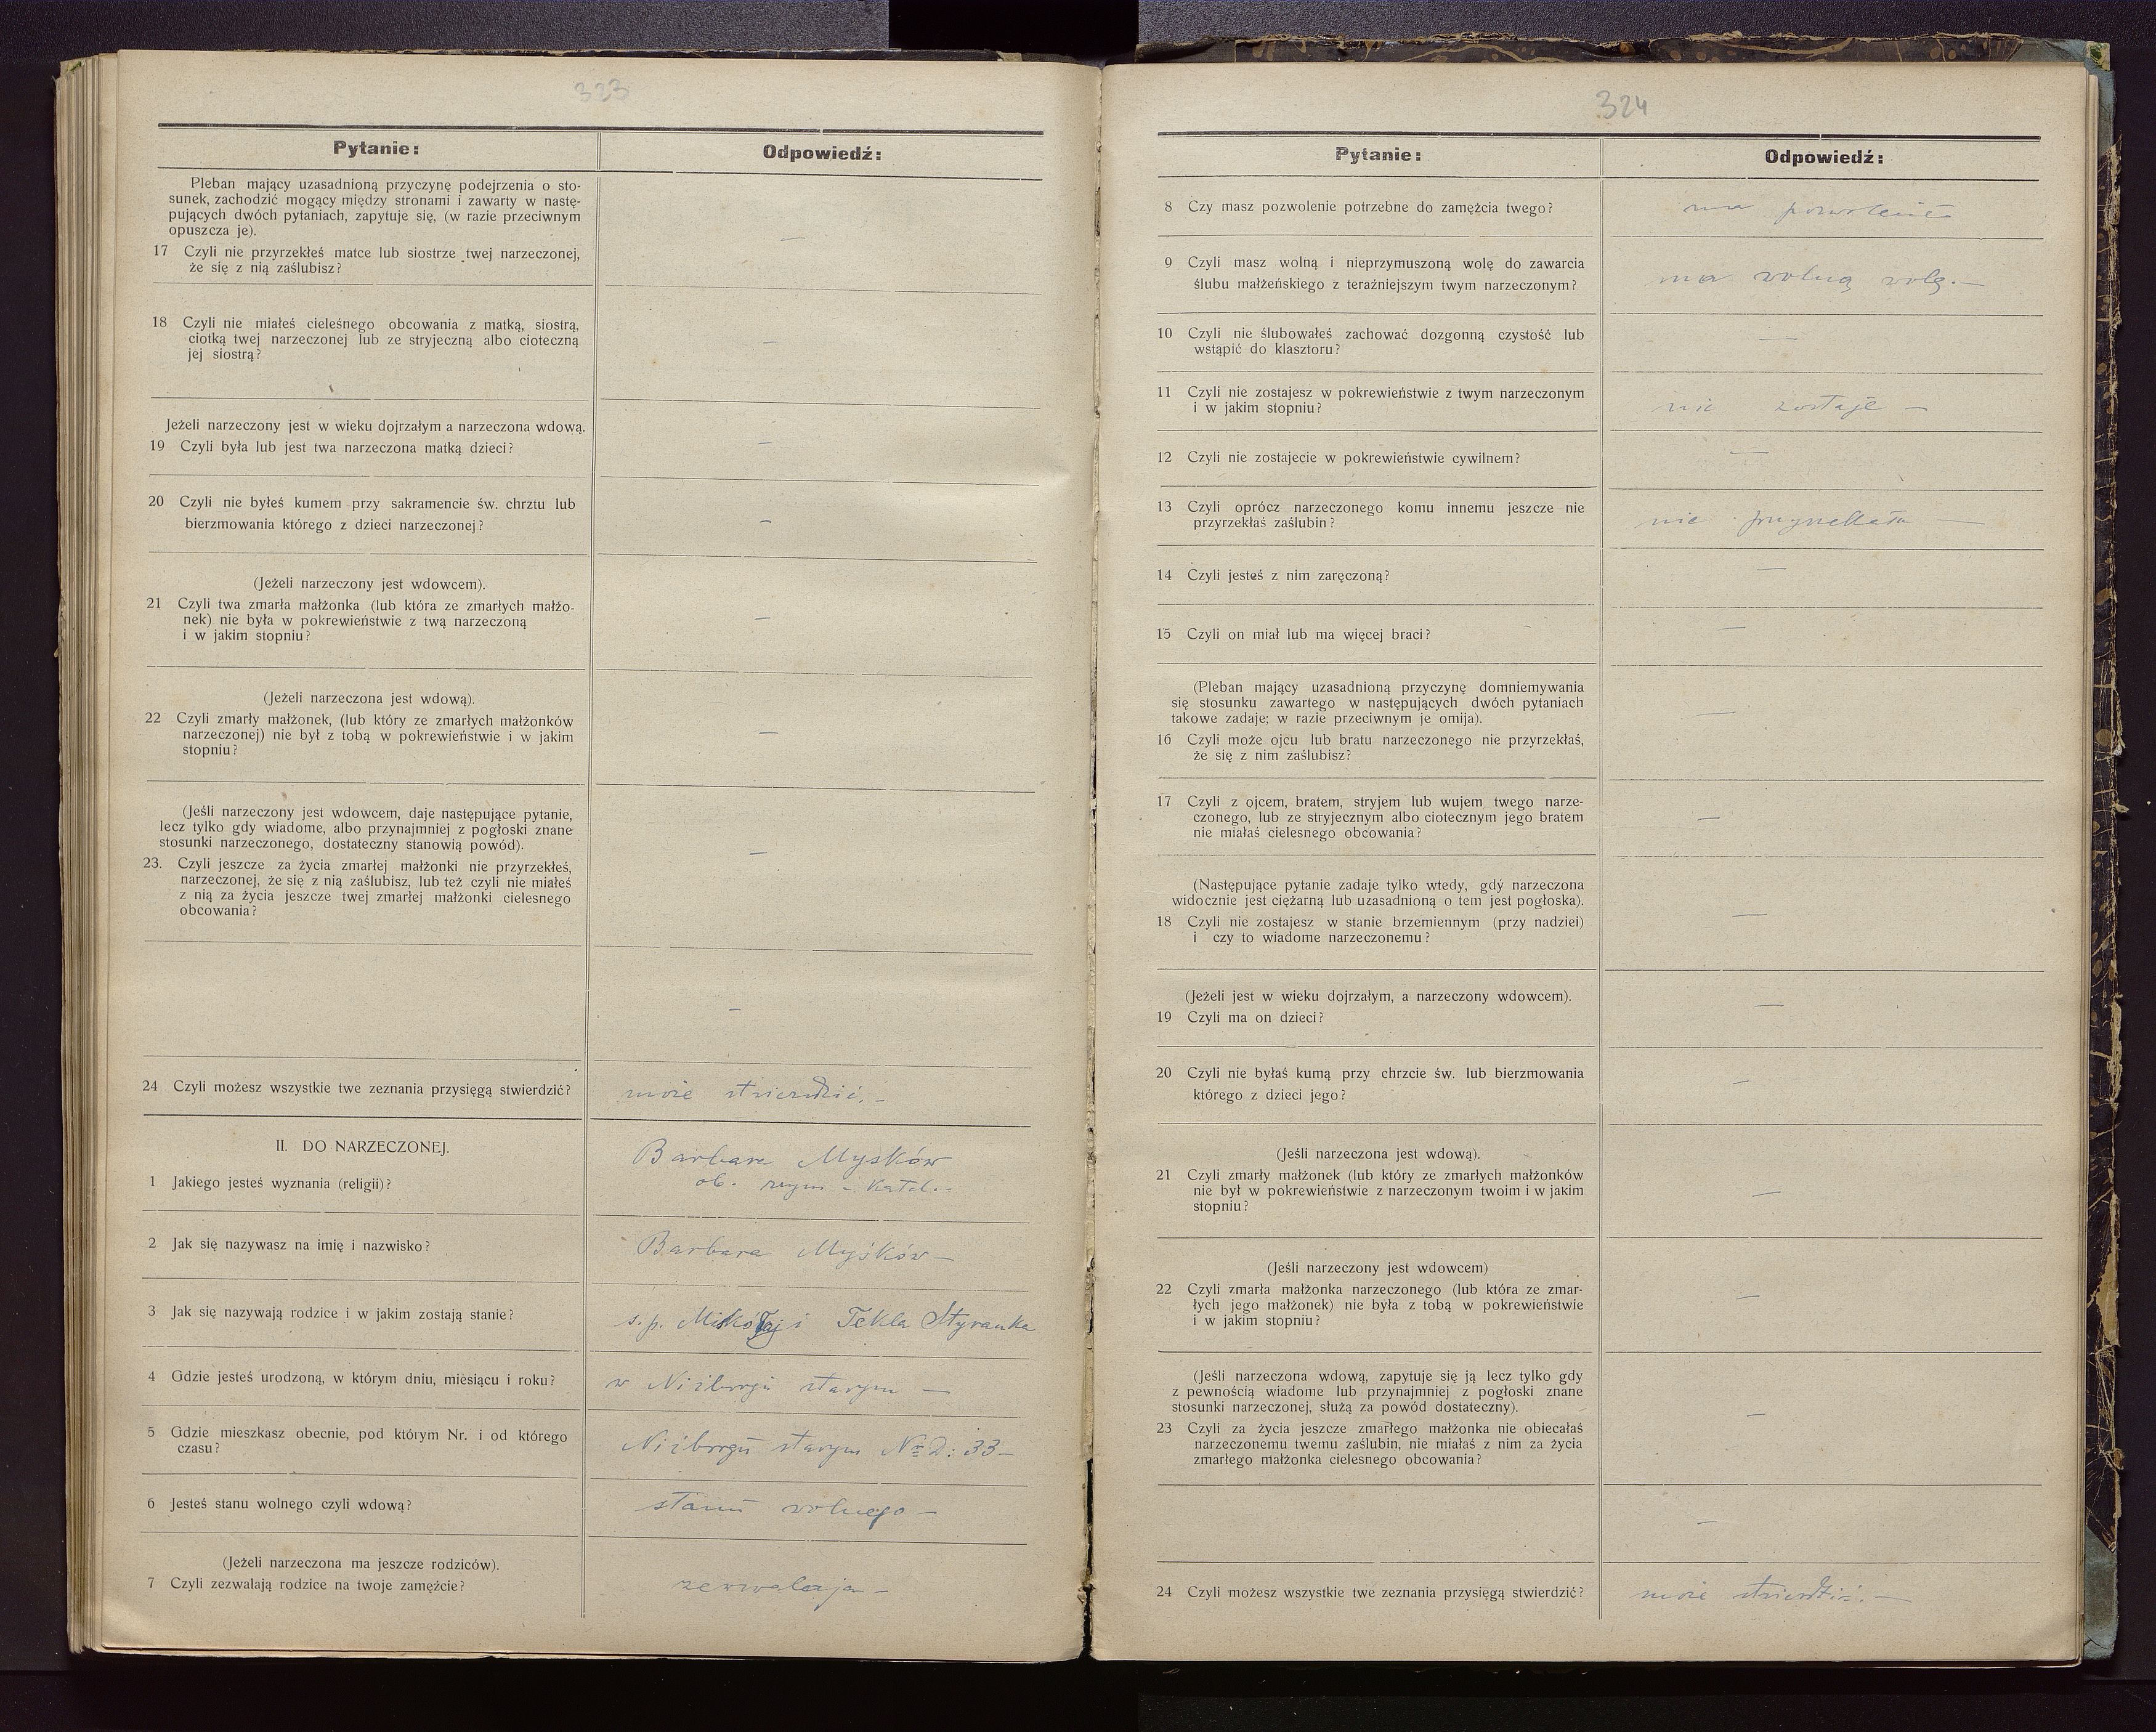 323
Pytanie:
Odpowiedź:
Pleban mający uzasadnioną przyczynę podejrzenia o sto-
sunek, zachodzić mogący między stronami i zawarty w nastę-
pujących dwóch pytaniach, zapytuje się, (w razie przeciwnym
opuszcza je).
17 Czyli nie przyrzekłeś matce lub siostrze twej narzeczonej,
że się z nią zaślubisz?
—
18 Czyli nie miałeś cieleśnego obcowania z matką, siostrą,
ciotką twej narzeczonej lub ze stryjeczną albo cioteczną
jej siostrą?
—
Jeżeli narzeczony jest w wieku dojrzałym a narzeczona wdową.
19 Czyli była lub jest twa narzeczona matką dzieci?
—
20 Czyli nie byłeś kumem przy sakramencie św. chrztu lub
bierzmowania którego z dzieci narzeczonej?
—
(Jeżeli narzeczony jest wdowcem).
21 Czyli twa zmarła małżonka (lub która ze zmarłych małżo-
nek) nie była w pokrewieństwie z twą narzeczoną
i w jakim stopniu?
—
(Jeżeli narzeczona jest wdową).
22 Czyli zmarły małżonek, (lub który ze zmarłych małżonków
narzeczonej) nie był z tobą w pokrewieństwie i w jakim
stopniu?
—
(Jeśli narzeczony jest wdowcem, daje następujące pytanie,
lecz tylko gdy wiadome, albo przynajmniej z pogłoski znane
stosunki narzeczonego, dostateczny stanowią powód).
23. Czyli jeszcze za życia zmarłej małżonki nie przyrzekłeś,
narzeczonej, że się z nią zaślubisz, lub też czyli nie miałeś
z nią za życia jeszcze twej zmarłej małżonki cielesnego
obcowania?
—
—
24 Czyli możesz wszystkie twe zeznania przysięgą stwierdzić?
może stwierdzić. –
II. DO NARZECZONEJ.
Barbara Myśków
1 Jakiego jesteś wyznania (religii)?
ob. rzym - katol. -
2 Jak się nazywasz na imię i nazwisko?
Barbara Myśków —
3 Jak się nazywają rodzice i w jakim zostają stanie?
s.p. Mikołaj i Tekla Styranka
4 Gdzie jesteś urodzoną, w którym dniu, miesiącu i roku?
w Niżborgu starym —
5 Gdzie mieszkasz obecnie, pod którym Nr. i od którego
czasu?
Niżborgu starym Nr D: 33 —
6 Jesteś stanu wolnego czyli wdową?
stanu wolnego —
(Jeżeli narzeczona ma jeszcze rodziców).
7 Czyli zezwalają rodzice na twoje zamęźcie?
zezwalają –
324
Pytanie:
Odpowiedź:
8 Czy masz pozwolenie potrzebne do zamężcia twego?
ma pozwolenie
9 Czyli masz wolną i nieprzymuszoną wolę do zawarcia
ślubu małżeńskiego z teraźniejszym twym narzeczonym?
ma wolną wolę. —
10 Czyli nie ślubowałeś zachować dozgonną czystość lub
wstąpić do klasztoru?
—
11 Czyli nie zostajesz w pokrewieństwie z twym narzeczonym
i w jakim stopniu?
nie zostaje —
12 Czyli nie zostajecie w pokrewieństwie cywilnem?
—
13 Czyli oprócz narzeczonego komu innemu jeszcze nie
przyrzekłaś zaślubin?
nie przyrzekłam —
14 Czyli jesteś z nim zaręczoną?
—
15 Czyli on miał lub ma więcej braci?
—
(Pleban mający uzasadnioną przyczynę domniemywania
się stosunku zawartego w następujących dwóch pytaniach
takowe zadaje; w razie przeciwnym je omija).
16 Czyli może ojcu lub bratu narzeczonego nie przyrzekłaś,
że się z nim zaślubisz?
—
17 Czyli z ojcem, bratem, stryjem lub wujem twego narze-
czonego, lub ze stryjecznym albo ciotecznym jego bratem
nie miałaś cielesnego obcowania?
—
(Następujące pytanie zadaje tylko wtedy, gdý narzeczona
widocznie jest ciężarną lub uzasadnioną o tem jest pogłoska).
18 Czyli nie zostajesz w stanie brzemiennym (przy nadziei)
i czy to wiadome narzeczonemu?
—
(Jeżeli jest w wieku dojrzałym, a narzeczony wdowcem).
19 Czyli ma on dzieci?
—
20 Czyli nie byłaś kumą przy chrzcie św. lub bierzmowania
którego z dzieci jego?
—
(Jeśli narzeczona jest wdową).
21 Czyli zmarły małżonek (lub który ze zmarłych małżonków
nie był w pokrewieństwie z narzeczonym twoim i w jakim
stopniu?
—
(Jeśli narzeczony jest wdowcem)
22 Czyli zmarła małżonka narzeczonego (lub która ze zmar-
łych jego małżonek) nie była z tobą w pokrewieństwie
i w jakim stopniu?
—
(Jeśli narzeczona wdową, zapytuje się ją lecz tylko gdy
z pewnością wiadome lub przynajmniej z pogłoski znane
stosunki narzeczonej, służą za powód dostateczny).
23 Czyli za życia jeszcze zmarłego małżonka nie obiecałaś
narzeczonemu twemu zaślubin, nie miałaś z nim za życia
zmarłego małżonka cielesnego obcowania?
—
—
24 Czyli możesz wszystkie twe zeznania przysięgą stwierdzić?
może stwierdzić. —